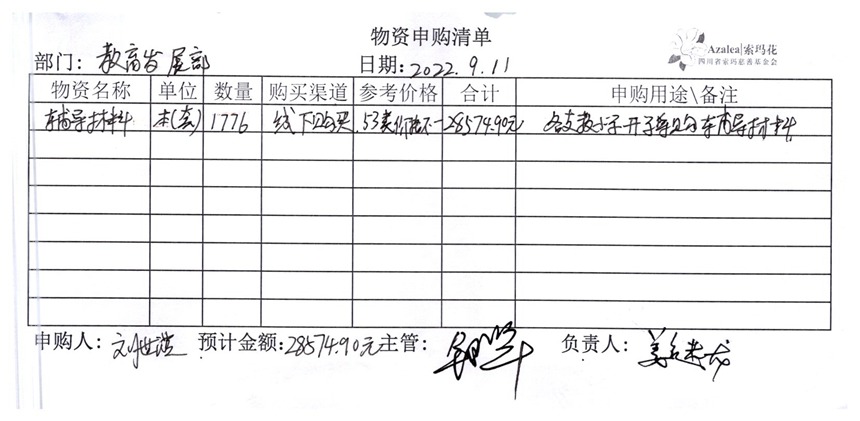 物资申购清单
Azalea|索玛花
四川省索玛慈善基金会
部门：教育发展部 日期：2022.9.11
物资名称 单位 数量 购买渠道 参考价格 合计 申购用途\备注
辅导材料 本(套) 1776 线下购买 53类价格不一 28574.90元 各支教小学开学的辅导材料
申购人： 预计金额：28574.90元 主管： 负责人：